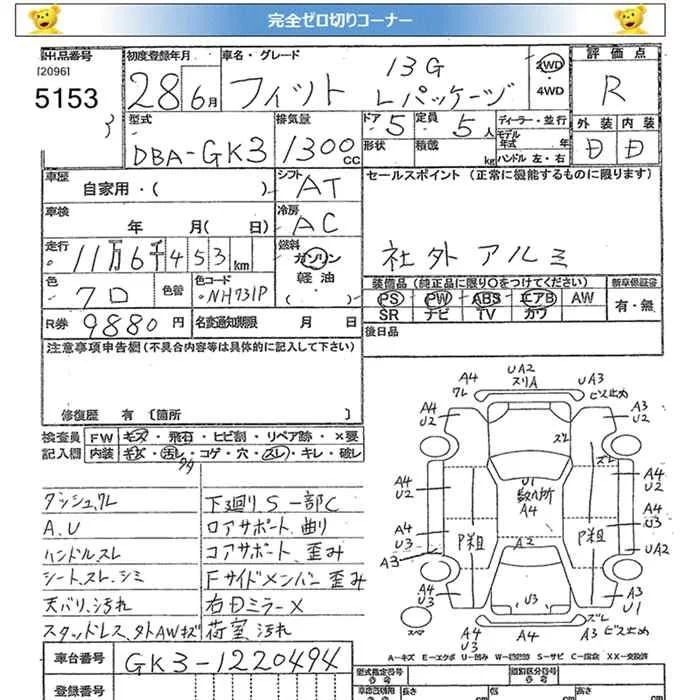 完全ゼロ切りコーナー
出品番号
[2096]
5153
初度登録年月
28 6月
車名・グレード
フィット 13G Lパッケージ
2WD
・4WD
評価点
R
型式
DBA-GK3
排気量
1300cc
ドア 5
定員 5人
ディーラー・並行
モデル年式 年
形状
積載 kg
ハンドル 左・右
外装
内装
D D
車歴
自家用・( )
シフト
AT
セールスポイント (正常に機能するものに限ります)
社外アルミ
車検
年 月( 日)
冷房
AC
走行
11万6千453km
燃料
ガソリン
軽油
色
クロ
色替
色コード
NH731P
装備品 (純正品に限り○をつけてください)
新車保証書
PS PW ABS エアB AW
SR ナビ TV カワ
有・無
R券
9880円
名変通知期限 月 日
後日品
注意事項申告欄(不具合内容等は具体的に記入して下さい)
修復歴 有 〔箇所 〕
検査員
記入欄
FW キズ・飛石・ヒビ割・リペア跡・×要
内装 キズ・汚レ・コゲ・穴・スレ・キレ・破レ
ダッシュ、ワレ
A.U
ハンドル、スレ
シート、スレ、シミ
天バリ、汚れ
スタッドレス、外AWキズ
下廻り S 一部C
ロアサポート 曲り
コアサポート 歪み
Fサイドメンバー 歪み
右Dミラー X
荷室 汚れ
A4
ワレ
UA2
スリA
A4
UA3
ビス止め
A4
U2
A3
U2
ズレ
ズレ
A4
U2
A4
U2
U1
数ヶ所
A4
A4
U3
A4
U3
P粗
P粗
A3
A2
UA2
A4
U3
U3
A3
U1
スペア
A4
U3
UA4
ズレ
A3
ビス止め
A-キズ E-エクボ U-凹み W-補修跡 S-サビ C-腐食 XX-交換済
車台番号
GK3-1220494
登録番号
型式指定番号
類別区分番号
長さ
cm
cm
cm